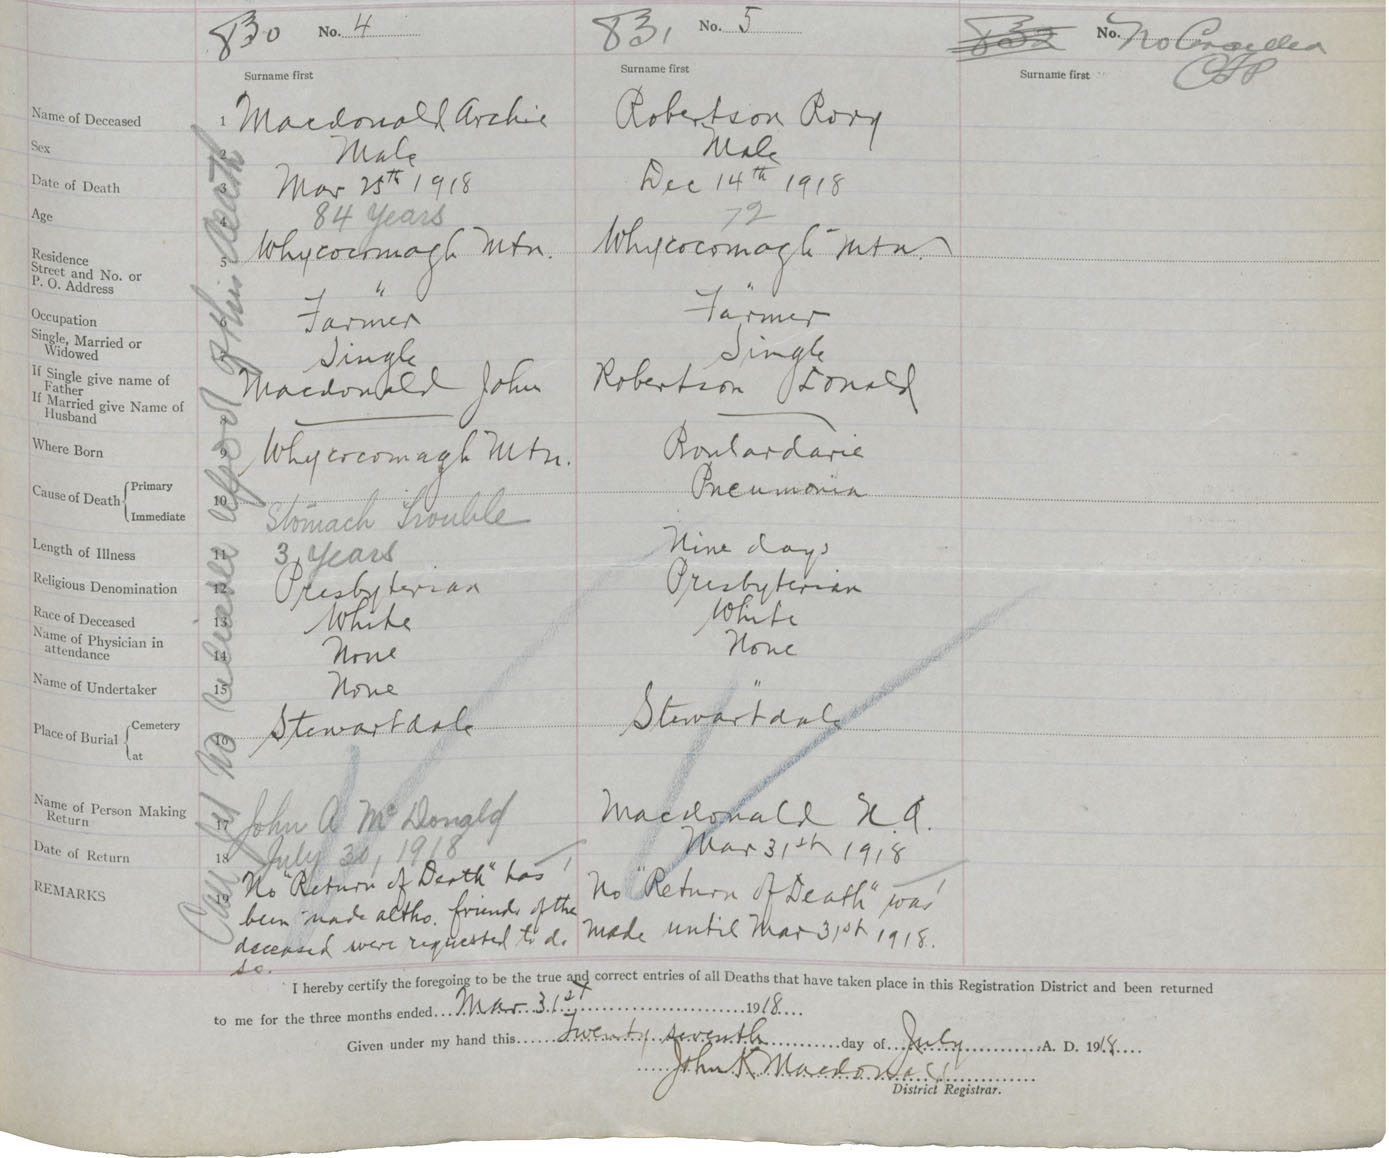 830 No. 4 831 No. 5 832 No. No
Surname first Surname first Surname first
Name of Deceased 1 Macdonald Archie Robertson Rory
Sex 2 Male Male
Date of Death 3 Mar 25th 1918 Dec 14th 1918
Age 4 84 Years 72
Residence
Street and No. or
P. O. Address 5 Whycocomagh Mtn. Whycocomagh Mtn.
" "
Occupation Farmer Farmer
Single, Married or
Widowed Single Single
If Single give name of
Father Macdonald John Robertson Donald
If Married give Name of
Husband 8
Where Born 9 Whycocomagh Mtn. Boulardarie
Cause of Death { Primary 10 Pneumonia
Immediate Stomach Trouble
Length of Illness 11 3 Years Nine days
Religious Denomination 12 Presbyterian Presbyterian
Race of Deceased 13 White White
Name of Physician in
attendance 14 None None
Name of Undertaker 15 None "
Place of Burial { Cemetery 16 Stewartdale Stewartdale
at
Name of Person Making
Return 17 John A McDonald Macdonald
Date of Return 18 July 30, 1918 Mar 31st 1918
REMARKS 19 No "Return of Death" has No "Return of Death" was
been made altho. friends of the made until Mar 31st 1918.
deceased were requested to do
so.
No reliable of this death
I hereby certify the foregoing to be the true and correct entries of all Deaths that have taken place in this Registration District and been returned
to me for the three months ended Mar 31st 1918
Given under my hand this Twenty seventh day of July A. D. 1918
John K Macdonald
District Registrar.